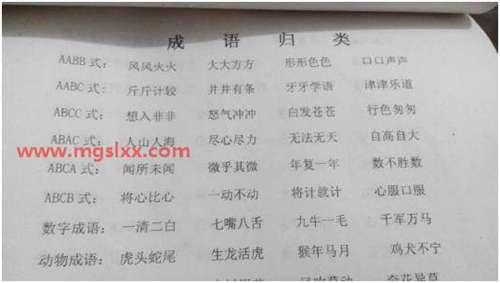 成语归类
AABB式: 风风火火 大大方方 形形色色 口口声声
AABC式: 斤斤计较 井井有条 牙牙学语 津津乐道
ABCC式: 想入非非 怒气冲冲 白发苍苍 行色匆匆
ABAC式: 人山人海 尽心尽力 无法无天 自高自大
www.mgslxx.com
ABCA式: 闻所未闻 微乎其微 年复一年 数不胜数
ABCB式: 将心比心 一动不动 将计就计 心服口服
数字成语: 一清二白 七嘴八舌 九牛一毛 千军万马
动物成语: 虎头蛇尾 生龙活虎 猴年马月 鸡犬不宁